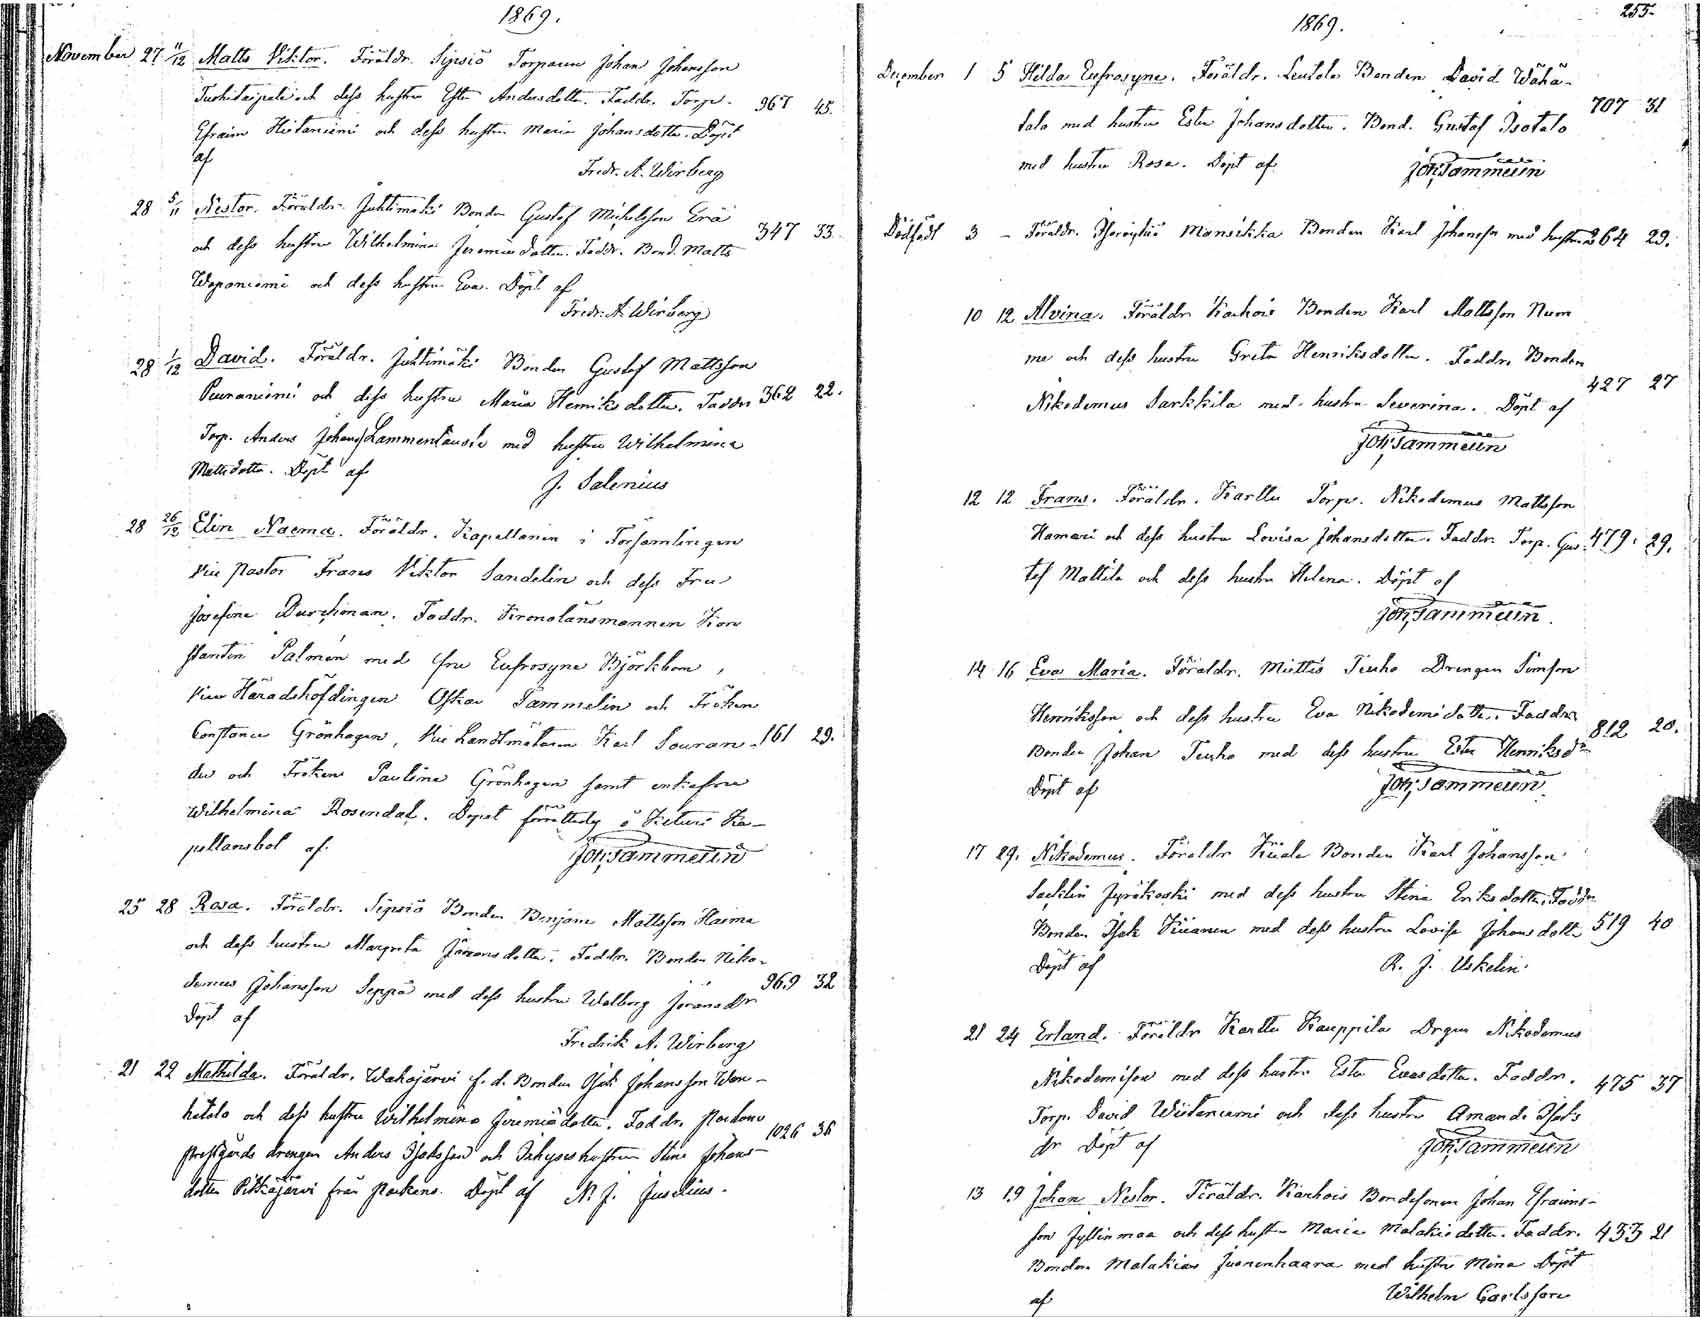 1869.
November 27 11/12 Matts Viktor. Föräldr. Sipsiö Torparen Johan Johansson
och dess hustru Ester Andersdotter. Faddr. Torp. 967 45.
Efraim Hietaniemi och dess hustru Maria Johansdotter. Döpt
af
Fredr. A. Wirberg
28 5/11 Nestor. Föräldr. Juhtimäki Bonden Gustaf Michelsson Erä
347 33
och dess hustru Wilhelmina Jeremiædotter. Faddr. Bond. Matts
Waponiemi och dess hustru Eva. Döpt af
Fredr. A. Wirberg
28 1/12 David. Föräldr. Juhtimäki Bonden Gustaf Mattsson
Peuraniemi och dess hustru Maria Henriksdotter. Faddr 362 22.
Torp. Anders Johans Lammentausta med hustru Wilhelmina
Mattsdotter. Döpt af J. Salenius
28 26/12 Elin Naema. Föräldr. Kapellanen i Församlingen
Vice Pastor Frans Viktor Sandelin och dess Fru
Josefina Durchman. Faddr. Kronolänsmannen Kon
stantin Palmén med fru Eufrosyne Björkbom,
Vice Häradshöfdingen Oskar Tammelin och Fröken
Constance Grönhagen, Vice Landtmätaren Karl Souran- 161 29.
der och Fröken Paulina Grönhagen samt enkefru
Wilhelmina Rosendal. Dopet förrättadt å Keturi Ka-
pellansbol af
Joh. Tammelin
25 28 Rosa. Föräldr. Sipsiö Bonden Benjam Mattsson Haima
och dess hustru Margreta Jöransdotter. Faddr. Bonden Niko-
demus Johansson Seppä med dess hustru Walborg Jöransdr 969 32
Döpt af
Fredrik A. Wirberg
21 22 Mathilda. Föräldr. Wahojärvi f. d. Bonden Isak Johansson Wan-
hatalo och dess hustru Wilhelmina Jeremiædotter. Faddr. Parkano
1026 36
prestgårds drengen Anders Isaksson och Inhyseshustrun Stina Johans-
dotter Pitkäjärvi från Parkano. Döpt af N. J. Juselius.
255.
1869.
December 1 5 Hilda Eufrosyne. Föräldr. Leutola Bonden David Wähä-
707 31
talo med hustru Ester Johansdotter. Bond. Gustaf Isotalo
med hustru Rosa. Döpt af Joh. Tammelin
Dödfödt 3 - Föräldr. Mansikka Bonden Karl Johansson med hustru 264 29.
10 12 Alvina. Föräldr Karhois Bonden Karl Mattsson Num
me och dess hustru Greta Henriksdotter. Faddr. Bonden
427 27
Nikodemus Sarkkila med hustru Severina. Döpt af
Joh. Tammelin
12 12 Frans. Föräldr. Karttu Torp. Nikodemus Mattsson
Hamari och dess hustru Lovisa Johansdotter. Faddr. Torp. Gus- 479. 29.
taf Mattila och dess hustru Helena. Döpt af
Joh. Tammelin.
14 16 Eva Maria. Föräldr. Miettis Tiuho Drengen Simson
Henriksson och dess hustru Eva Nikodemidotter. Faddr
812 20.
Bonden Johan Tiuho med dess hustru Ester Henriksdr
Döpt af Joh. Tammelin.
17 29. Nikodemus. Föräldr Küala Bonden Karl Johansson
Jyräkoski med dess hustru Stina Eriksdotter. Faddr
Bonden Isak Kiianen med dess hustru Lovisa Johansdott 519 40
Döpt af R. J. Uskelin.
21 24 Erland. Föräldr Karttu Kauppila Drgen Nikodemus
Nikodemisson med dess hustru Ester Evasdotter. Faddr. 475 37
Torp. David Wiitaniemi och dess hustru Amanda Isaks
dr Döpt af Joh. Tammelin
13 19 Johan Nestor. Föräldr. Karhois Bondesonen Johan Efraims-
son Jyllinmaa och dess hustru Maria Malakiedotter. Faddr. 433 21
Bonden Malakias Juonenhaara med hustru Mina Döpt
af Wilhelm Carlsson